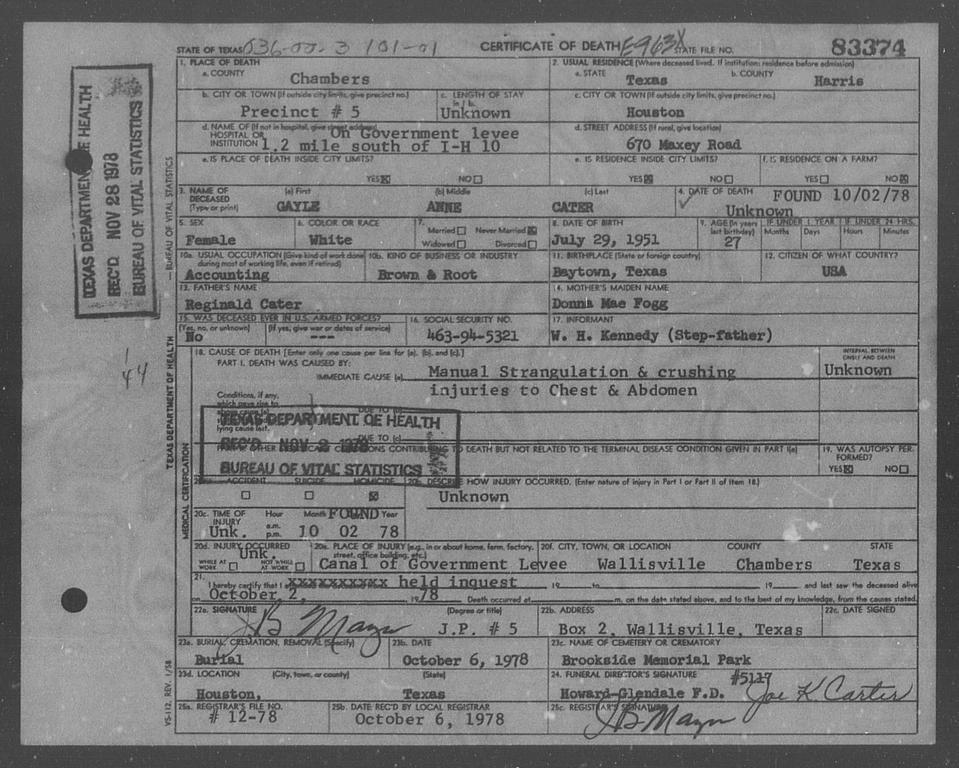 STATE OF TEXAS 036-00-3 101-01 CERTIFICATE OF DEATH STATE FILE NO. 83374
1. PLACE OF DEATH
a. COUNTY
Chambers
2. USUAL RESIDENCE (Where deceased lived. If institution: residence before admission)
a. STATE b. COUNTY
Texas Harris
b. CITY OR TOWN (If outside city limits, give precinct no.)
Precinct # 5
c. LENGTH OF STAY
in 1 b.
Unknown
c. CITY OR TOWN (If outside city limits, give precinct no.)
Houston
d. NAME OF (If not in hospital, give street address)
HOSPITAL OR On Government levee
INSTITUTION 1.2 mile south of I-H 10
d. STREET ADDRESS (If rural, give location)
670 Maxey Road
e. IS PLACE OF DEATH INSIDE CITY LIMITS?
YES☒ NO☐
e. IS RESIDENCE INSIDE CITY LIMITS?
YES☒ NO☐
f. IS RESIDENCE ON A FARM?
YES☐ NO☒
3. NAME OF DECEASED (Type or print)
(a) First (b) Middle (c) Last
GAYLE ANNE CATER
4. DATE OF DEATH FOUND 10/02/78
Unknown
5. SEX
Female
6. COLOR OR RACE
White
7. Married☐ Never Married☒
Widowed☐ Divorced☐
8. DATE OF BIRTH
July 29, 1951
9. AGE (In years last birthday)
27
IF UNDER 1 YEAR IF UNDER 24 HRS.
Months Days Hours Minutes
10a. USUAL OCCUPATION (Give kind of work done during most of working life, even if retired)
Accounting
10b. KIND OF BUSINESS OR INDUSTRY
Brown & Root
11. BIRTHPLACE (State or foreign country)
Baytown, Texas
12. CITIZEN OF WHAT COUNTRY?
USA
13. FATHER'S NAME
Reginald Cater
14. MOTHER'S MAIDEN NAME
Donna Mae Fogg
15. WAS DECEASED EVER IN U.S. ARMED FORCES?
(Yes, no, or unknown) (If yes, give war or dates of service)
No ---
16. SOCIAL SECURITY NO.
463-94-5321
17. INFORMANT
W. H. Kennedy (Step-father)
18. CAUSE OF DEATH [Enter only one cause per line for (a), (b), and (c).]
PART I. DEATH WAS CAUSED BY:
IMMEDIATE CAUSE (a) Manual Strangulation & crushing
injuries to Chest & Abdomen
INTERVAL BETWEEN ONSET AND DEATH
Unknown
Conditions, if any,
which gave rise to
lying cause last.
DUE TO (c)
CONTRIBUTING TO DEATH BUT NOT RELATED TO THE TERMINAL DISEASE CONDITION GIVEN IN PART I(a)
19. WAS AUTOPSY PERFORMED?
YES☒ NO☐
TEXAS DEPARTMENT OF HEALTH
REC'D NOV 2 1978
BUREAU OF VITAL STATISTICS
20a. ACCIDENT SUICIDE HOMICIDE
☐ ☐ ☒
20b. DESCRIBE HOW INJURY OCCURRED. (Enter nature of injury in Part I or Part II of Item 18.)
Unknown
20c. TIME OF INJURY Hour a.m. p.m. Month FOUND Year
Unk. 10 02 78
20d. INJURY OCCURRED
Unk.
WHILE AT WORK ☐ NOT WHILE AT WORK ☐
20e. PLACE OF INJURY (e.g., in or about home, farm, factory, street, office building, etc.)
Canal of Government Levee
20f. CITY, TOWN, OR LOCATION COUNTY STATE
Wallisville Chambers Texas
21. I hereby certify that I xxxxxxxxxx held inquest 19 to 19 and last saw the deceased alive
on October 2, 19 78 Death occurred at m. on the date stated above, and to the best of my knowledge, from the causes stated.
22a. SIGNATURE (Degree or title)
J B Mayn J.P. # 5
22b. ADDRESS
Box 2, Wallisville, Texas
22c. DATE SIGNED
23a. BURIAL, CREMATION, REMOVAL (Specify)
Burial
23b. DATE
October 6, 1978
23c. NAME OF CEMETERY OR CREMATORY
Brookside Memorial Park
23d. LOCATION (City, town, or county) (State)
Houston, Texas
24. FUNERAL DIRECTOR'S SIGNATURE #5117
Howard-Glendale F.D. Joe K. Carter
25a. REGISTRAR'S FILE NO.
# 12-78
25b. DATE REC'D BY LOCAL REGISTRAR
October 6, 1978
25c. REGISTRAR'S SIGNATURE
J B Mayn
TEXAS DEPARTMENT OF HEALTH
REC'D NOV 28 1978
BUREAU OF VITAL STATISTICS
TEXAS DEPARTMENT OF HEALTH — BUREAU OF VITAL STATISTICS
MEDICAL CERTIFICATION
VS-112, REV. 1/58
44